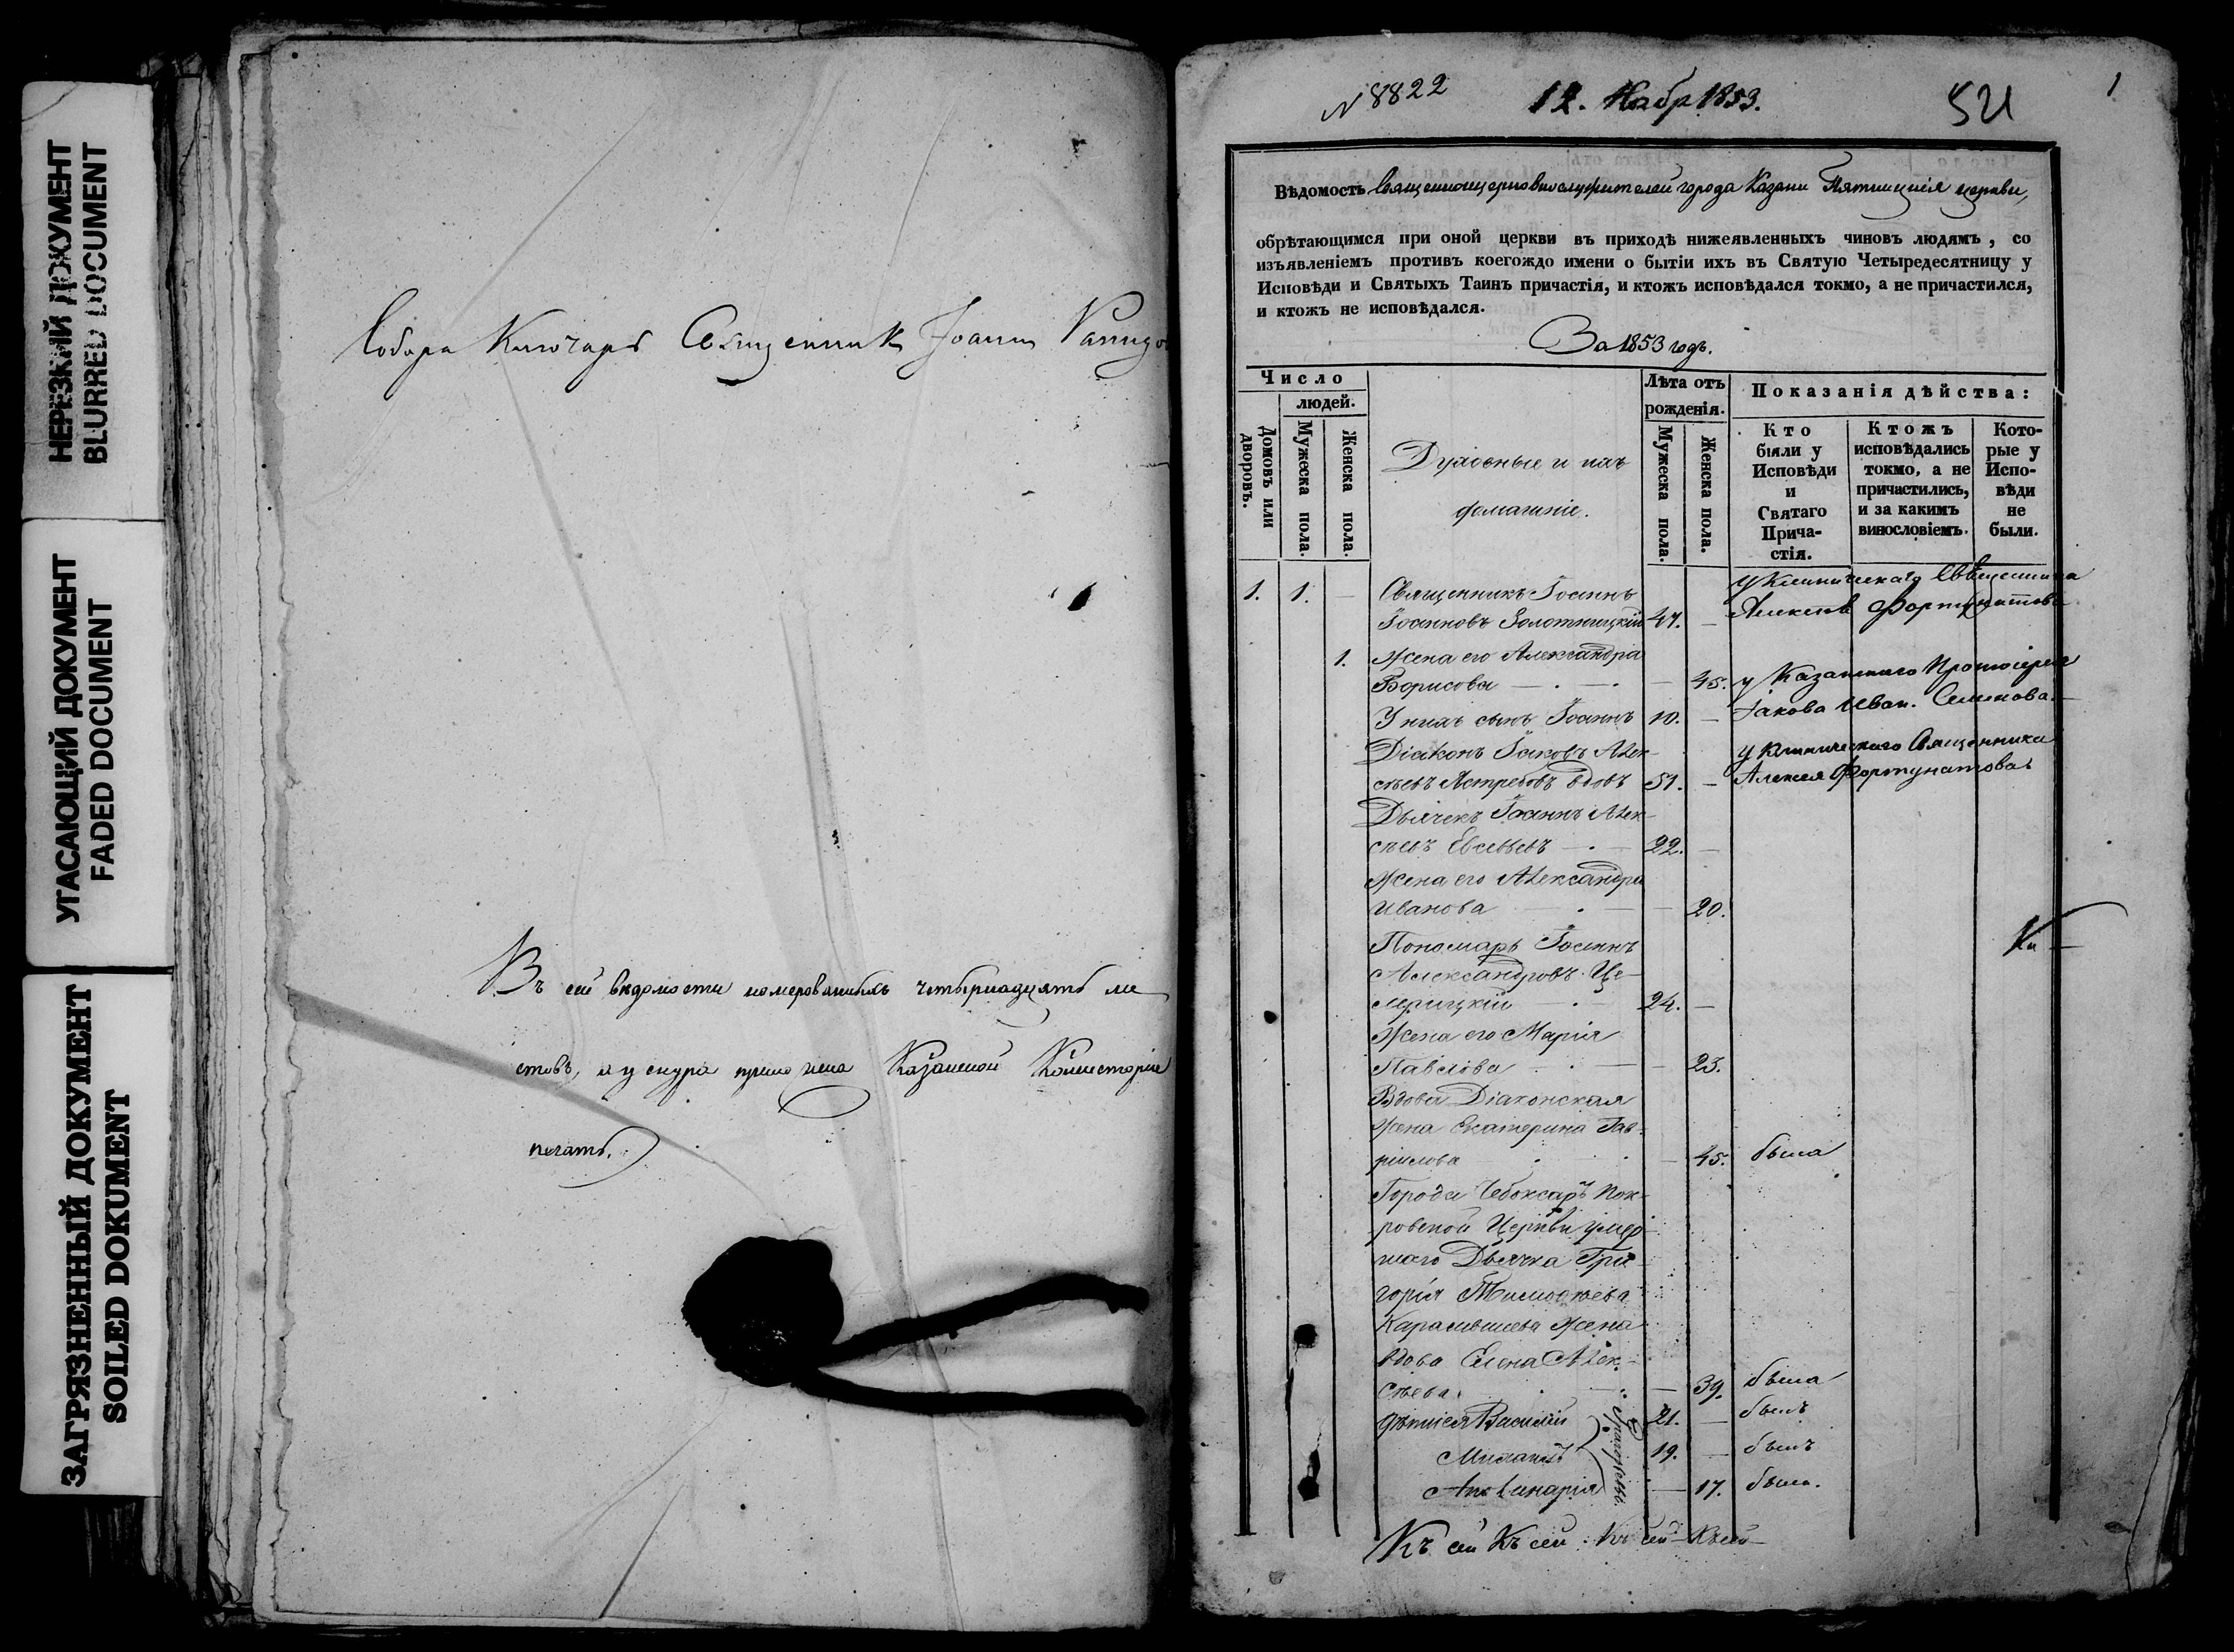 НЕРЕЗКИЙ ДОКУМЕНТ
BLURRED DOCUMENT
УГАСАЮЩИЙ ДОКУМЕНТ
FADED DOCUMENT
ЗАГРЯЗНЕННЫЙ ДОКУМЕНТ
SOILED DOKUMENT
Собора Ключарь Священник Іоанн
Въ сей ведомости номерованныхъ четырнадцать ли
стовъ, а у снура приложена Казанской Консисторіи
печать.
N 8822
12. Ноабр 1853.
521
1
Вѣдомость Священноцерковнослужителей города Казани Пятницкія церкви,
обрѣтающимся при оной церкви въ приходѣ нижеявленныхъ чиновъ людямъ, со
изъявленіемъ противъ коегождо имени о бытіи ихъ въ Святую Четыредесятницу у
Исповѣди и Святыхъ Таинъ причастія, и ктожъ исповѣдался токмо, а не причастился,
и ктожъ не исповѣдался.
За 1853 годъ.
Число
людей.
Домовъ или дворовъ.
Мужеска пола.
Женска пола.
Духовные и ихъ
домашніе.
Лѣта отъ
рожденія.
Мужеска пола.
Женска пола.
Показанія дѣйства:
Кто
были у
Исповѣди
и
Святаго
Прича-
стія.
Ктожъ
исповѣдались
токмо, а не
причастились,
и за какимъ
винословіемъ.
Кото-
рые у
Испо-
вѣди
не
были.
1. 1. — Священникъ Іоаннъ у Клиническаго Священника
Іоанновъ Золотницкій 47. — Алексѣя Фортунатова
1. Жена его Александра
Борисова — 45. у Казанскаго Протоіерея
У нихъ сынъ Іоаннъ 10. — Іакова Иван. Семенова.
Діаконъ Іаковъ Алек- у Клиническаго Священника
сѣевъ Ястребовъ вдовъ 51. — Алексея Фортунатова
Дьячекъ Іоаннъ Алек-
сѣевъ Евсевьевъ — 22. —
Жена его Александра
Иванова — 20.
Пономарь Іоаннъ
Александровъ Це-
лерицкій — 24. —
Жена его Марія
Павлова — 23.
Вдова Діаконская
жена Екатерина Гав-
рiилова — 45. была
Города Чебоксаръ Пок-
ровской Церкви умер-
шаго Дьячка Гри-
горія Тимоѳеева
Карамышева жена
вдова Елена Алек-
сѣева — 39. была
дѣти ея Василій 21. — былъ
Михаилъ 19. — былъ
Аполинарія — 17. была.
Къ сей Къ сей Къ сей Къ сей